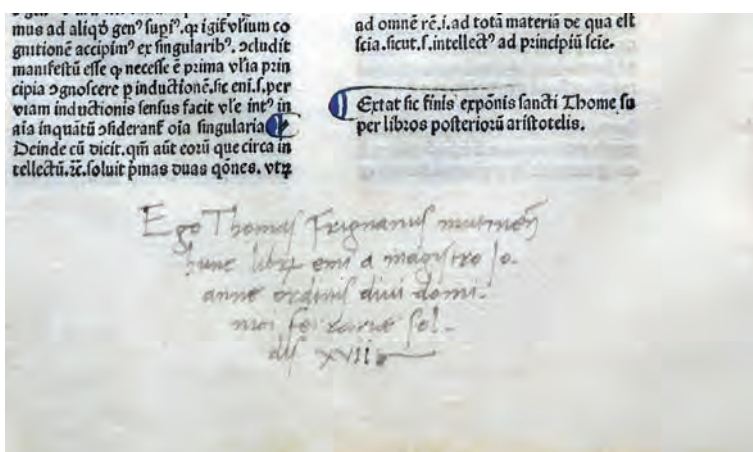 mus ad aliqḋ genꝰ supiꝰ. qꝛ igit᷑ vlium co
gnitionē accipimꝰ ex singularibꝰ. ↄcludit
manifestū esse ꝙ necesse ē prima vl̃ia prin
cipia ↄgnoscere ꝑ inductionē. sic eni. s. per
viam inductionis sensus facit vl̃e intꝰ in
aīa inquātū ↄsiderant᷑ oīa singularia
Deinde cū dicit. qm̄ aūt eorū que circa in
tellectū. ꝛc. soluit p̄mas duas q̄ones. vtꝝ
ad omnē rē. i. ad totā materiā de qua est
scia. sicut. s. intellectꝰ ad principiū scie.
Extat sic finis expōnis sancti Thome su
per libros posteriorū aristotelis.
Ego Thomas Frignanus mutineñ
hunc librꝫ emi a magistro Jo-
anne ordinis diui domi-
nici ferrariæ sol-
dis XVII